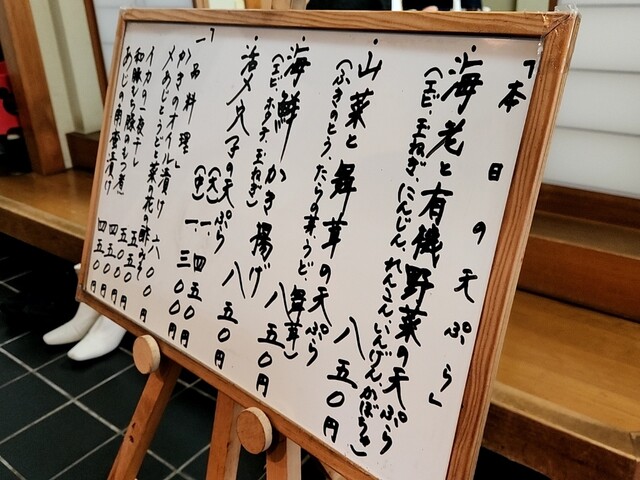 「本日の天ぷら」
・海老と有機野菜の天ぷら
(エビ、玉ねぎ、にんじん、れんこん、いんげん、かぼちゃ)
・山菜と舞茸の天ぷら 八五〇円
(ふきのとう、たらの芽、うど、舞茸)
・海鮮かき揚げ 八五〇円
(エビ、ホタテ、玉ねぎ)
・活〆穴子の天ぷら 八五〇円
(大) 一、四五〇円
(中) 一、三〇〇円
「一品料理」
かきのオイル漬け 六〇〇円
〆あじとうどと菜の花の酢みそ 五五〇円
イカの一夜干し 五五〇円
和豚もち豚のもつ煮 四五〇円
あじの南蛮漬け 四五〇円